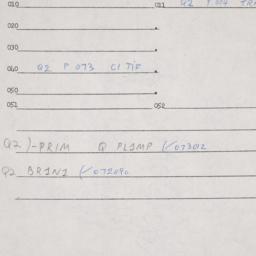 010 011 Q2 P 074 TRA
020
030
040 Q2 P 073 CI TIF
050
051 052
Q2 )-PRIM Q PLIMP (/073012
Q2 BRINI (/072090